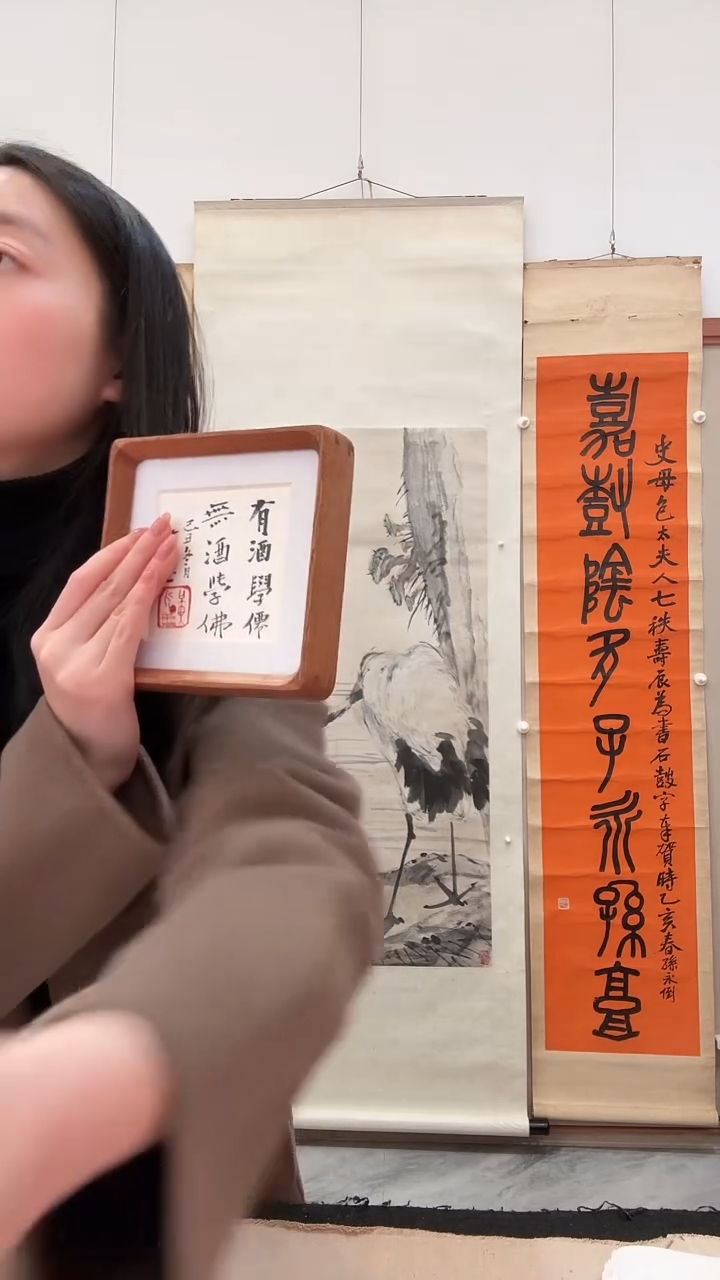 有酒學僊
無酒學佛
己丑冬月
史母包太夫人七秩壽辰為書石鼓字奉賀時乙亥春孫永
嘉尌陰多子永孫